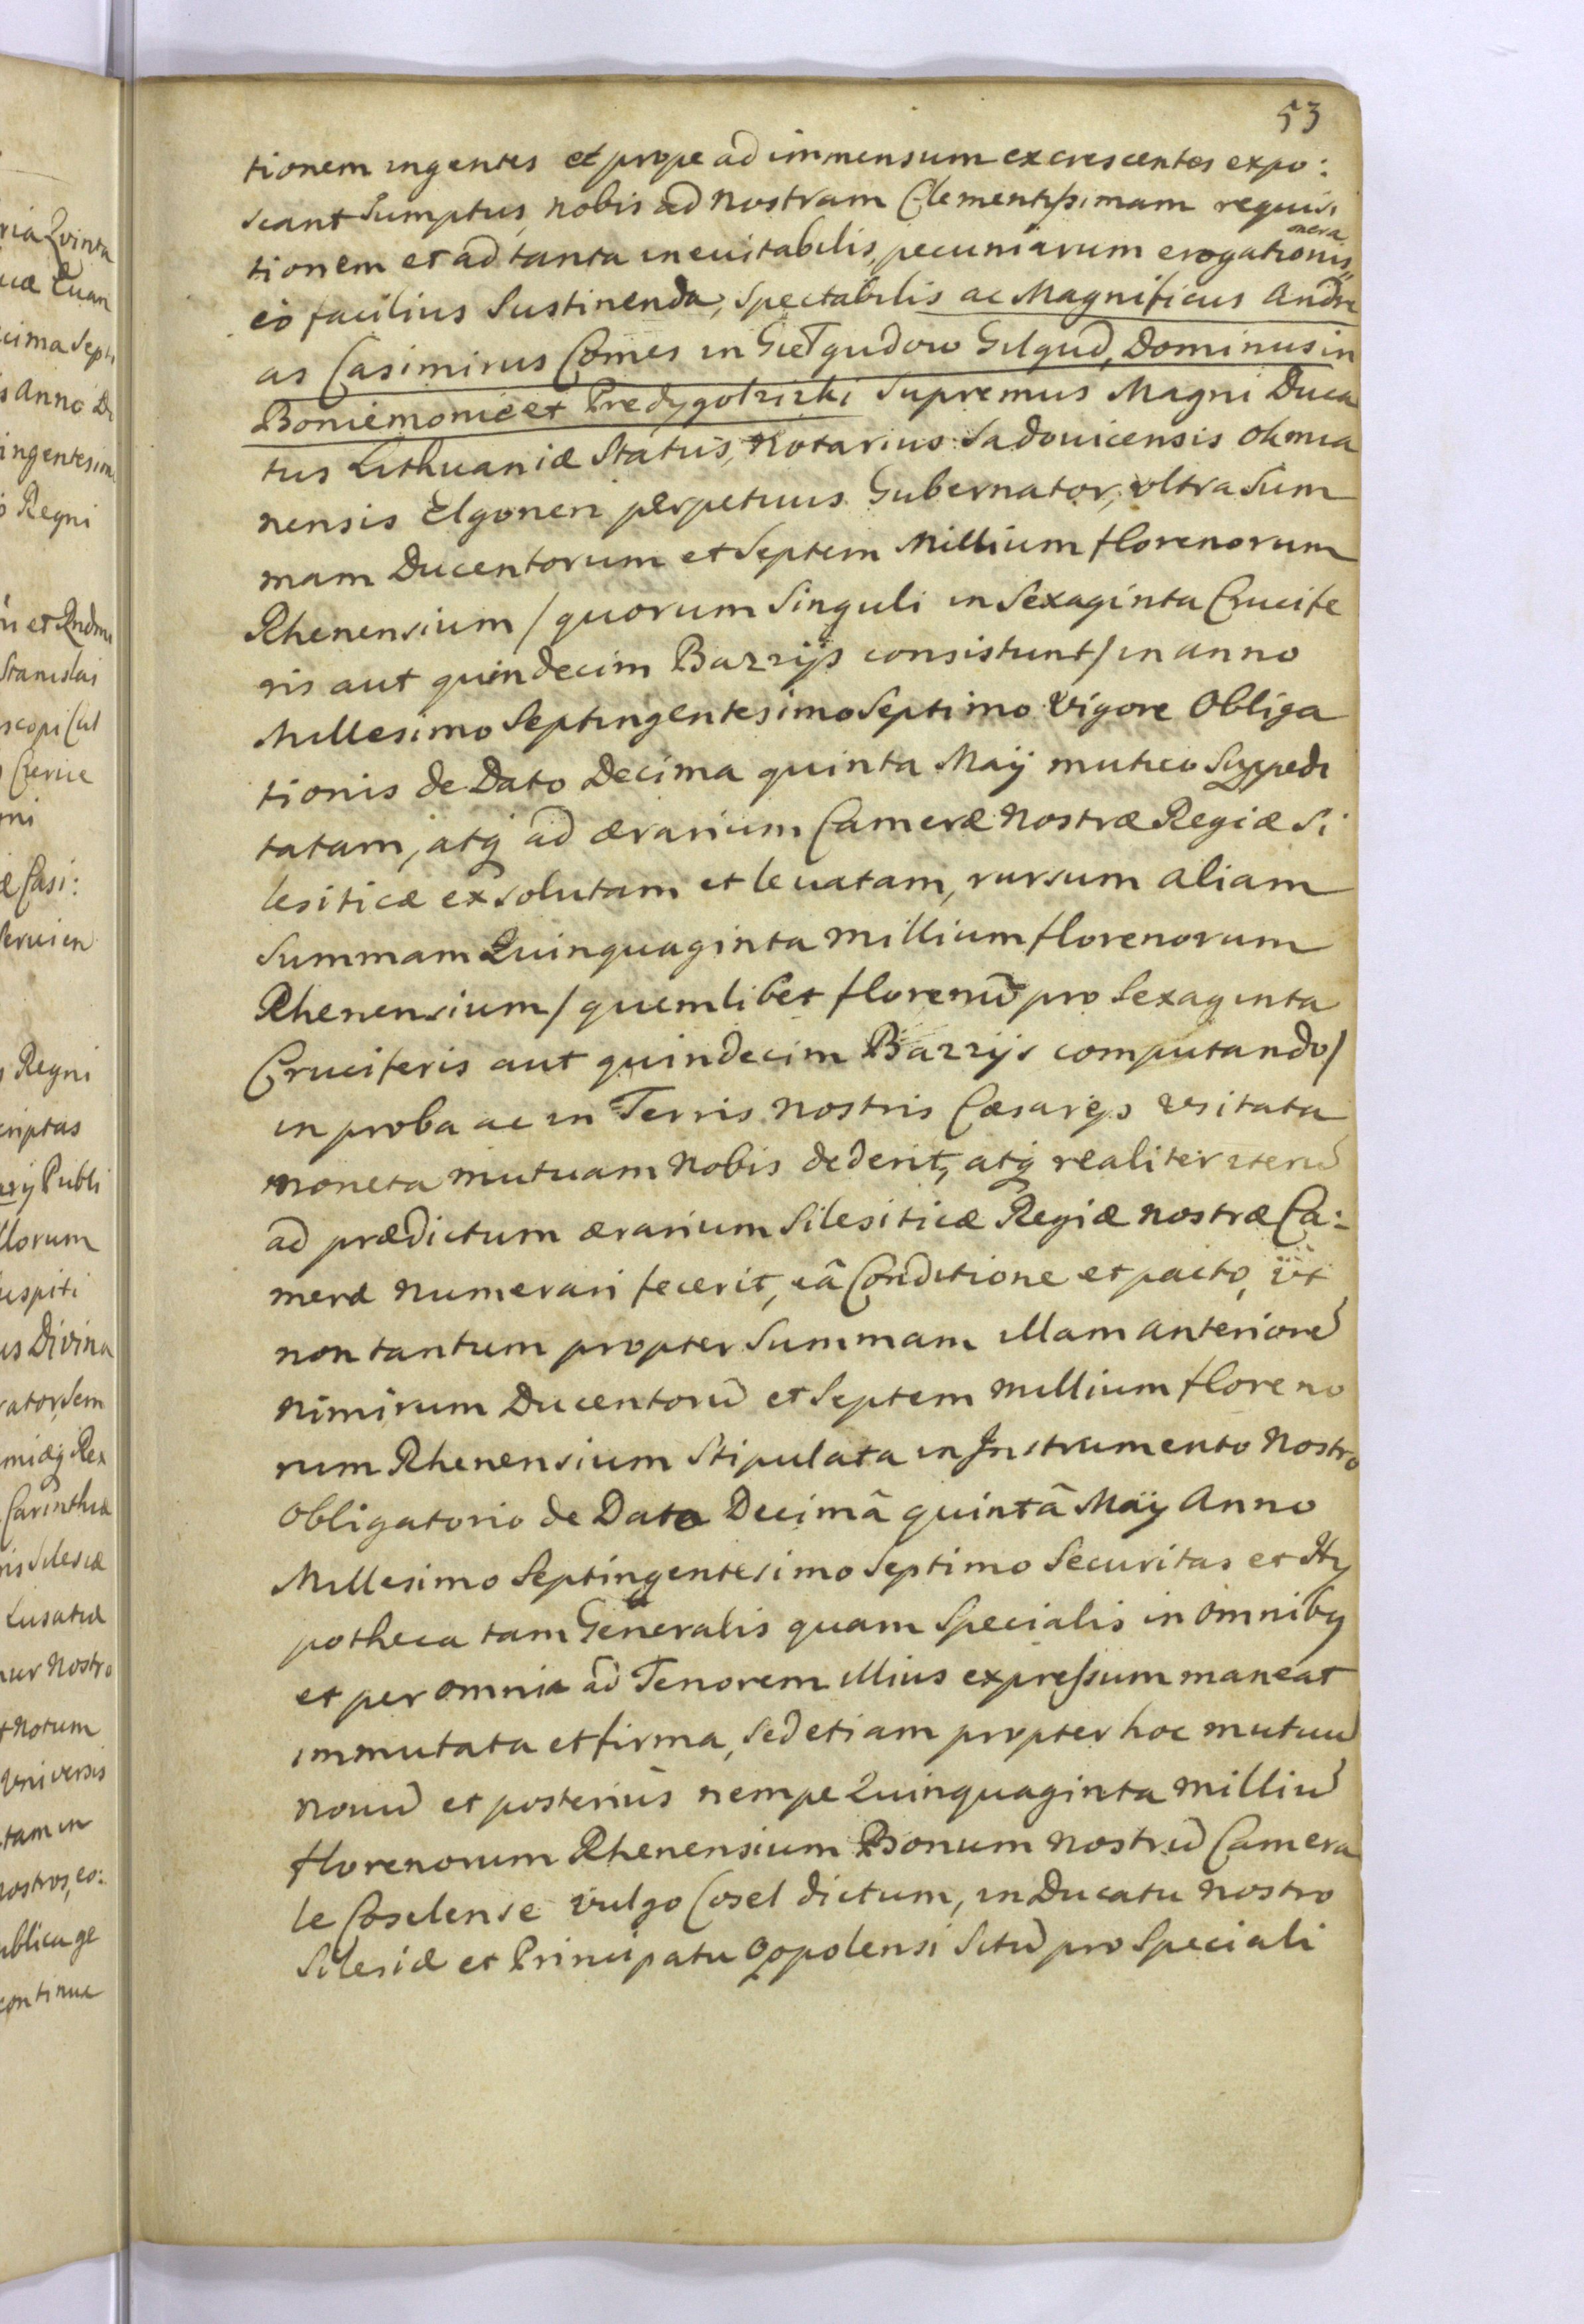 53
tionem ingentes et prope ad immensum excrescentes expo:
scant Sumptus, nobis ad nostram Clementissimam requisi
tionem et ad tanta inevitabilis, pecuniarum erogationis onera
eò facilius Sustinenda, Spectabilis ac Magnificus Andre
as Casimirus Comes in Gietgudow Gilgud, Dominus in
Boniemonie et Predygolziski Supremus Magni Duca
tus Lithuaniæ Status, Notarius Sadouicensis
nensis Elgoneri perpetuus Gubernator, ultra Sum
mam Ducentorum et Septem Millium florenorum
Rhenensium / quorum Singuli in Sexaginta Crucife
ris aut quindecim Bazzijs consistunt / in anno
Millesimo Septingentesimo Septimo Vigore Obliga
tionis de Dato Decima quinta Maÿ mutuo Suppedi
tatam, atq ad ærarium Cameræ Nostræ Regiæ Si
lesiticæ exsolutam et leuatam, rursum aliam
Summam Quinquaginta Millium florenorum
Rhenensium / quemlibet florenū pro Sexaginta
Cruciferis aut quindecim Bazzijs computando /
in proba ac in Terris nostris Cæsareis vsitata
moneta mutuam Nobis dederit, atq realiter iterū
ad prædictum ærarium Silesiticæ Regiæ nostræ Ca:
meræ numerari fecerit, eâ Conditione et pacto, vt
non tantum propter Summam illam anteriorē
nimirum Ducentorū et Septem millium floreno
rum Rhenensium Stipulata in Instrumento Nostro
Obligatorio de Dato Decimâ quintâ Maÿ Anno
Millesimo Septingentesimo Septimo Securitas et Hy
potheca tam Generalis quam Specialis in omnibq
et per omnia ad Tenorem illius expressum maneat
immutata et firma, Sed etiam propter hoc mutuū
nouū et posterius nempe Quinquaginta Milliū
florenorum Rhenensium Bonum nostrū Camera
le Coselense vulgo Cosel dictum, in Ducatu Nostro
Silesiæ et Principatu Oppolensi Sitū pro Speciali